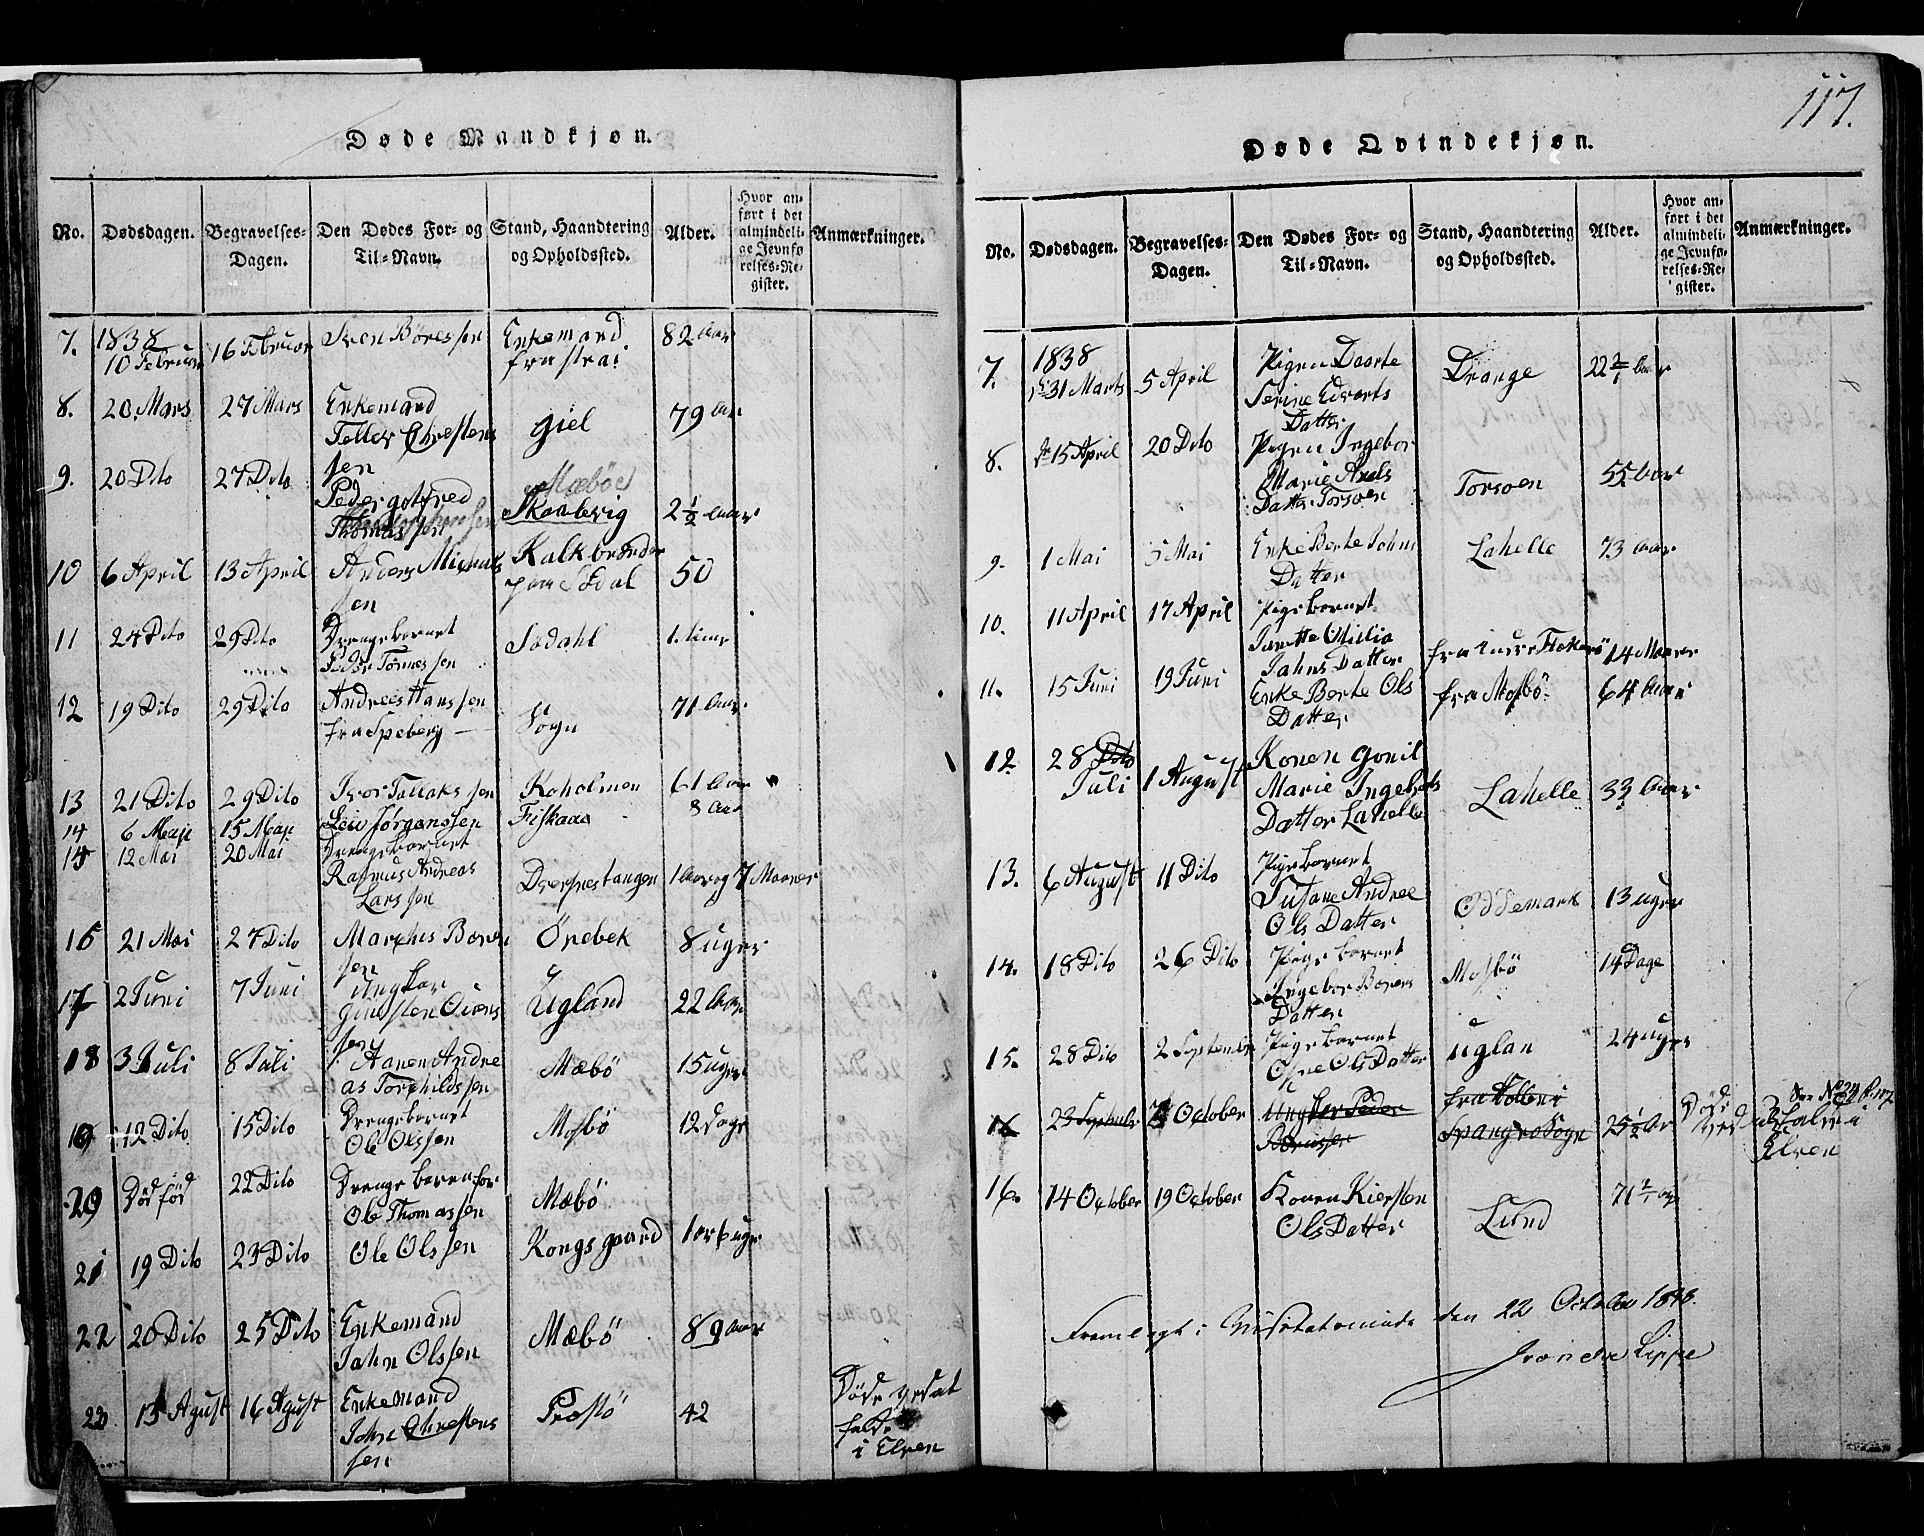 Døde Mandkjøn.
No. Dødsdagen. Begravelses-Dagen. Den Dødes For- og Til-Navn. Stand, Haandtering og Opholdssted. Alder. Hvor anført i det almindelige Jevnførelses-Register. Anmærkninger.
7. 1838
10 Februar 16 Februar Iven Børessen Enkemand 82 Aar
8. 20 Mars 27 Mars Enkemand
Teller Chrestens
sen giel 79 Aar
9. 20 Dito 27 Dito Peder gotfred
Thomassen Mæbøe
Skaalevig 2 1/2 Aaar
10 6 April 13 April Anders Michals
sen Kalkbrænder 50
11 24 Dito 29 Dito Drengebarnet
Peder Tønnessen Sødahl
12 19 Dito 29 Dito Andrees Hanssen
fra Speberg Sogn 71 Aar
13 21 Dito 29 Dito Ivor Tallaksen Koholmen 61 Aar
14 6 Maji 15 Maji Leiv Jørgenssen Fiskaaa 8 Aar
15 12 Mai 20 Mai Drengebarnet
Rasmus Andreas
Larssen Dversnestangen 1 Aar og 7 Maaner
16 21 Mai 27 Dito Marchus Boren
sen Øvebek 8 uger
17 2 Juni 7 Juni Ungkar
sen Ugland 22 Aar
18 3 Juli 8 Juli Aanen Andre
as Torkildssen Mæbø 15 uger
19 12 Dito 15 Dito Drengebarnet
Ole Olssen Mosbø 12 Dage
20 Dødfød 22 Dito
Ole Thomassen Mæbø
21 19 Dito 23 Dito Ole Olssen Kongsgaard
22 20 Dito 25 Dito Enkemand
Jahn Olssen Mæbø 89 Aar
23 13 Agust 16 Agust Enkemand
John Chrestens
sen Præstø 42 Døde ved at
falde
i Elven
117.
Døde Qvindekjøn.
No. Dødsdagen. Begravelses-Dagen. Den Dødes For- og Til-Navn. Stand, Haandtering og Opholdssted. Alder. Hvor anført i det almindelige Jevnførelses-Register. Anmærkninger.
7. 1838
31 Marts 5 April Pigen Daarte
Serine Edvarts
Datter Drange
8. 15 April 20 Dito Pigen Ingebor
Marie Axels
Datter Torsøen Torsøen 55 Aar
9. 1 Mai 5 Mai Enke Berte Johns
Datter Lahelle 73 Aar
10. 11 April 17 April Pigebarnet
Jahns Datter 14 Maaner
11. 15 Juni 19 Juni Enke Berte Ols
Datter fra Mosbø 64 Aar
12 28 Dito
Juli 1 August Konen Gonil
Marie Ingebrets
Datter Lahelle Lahelle 33 Aar
13. 6 August 11 Dito Pigebarnet
Susane Andree
Ols Datter Oddemark 13 uger
14. 18 Dito 26 Dito Pigebarnet
Ingebor Borens
Datter Mosbø 14 Dage
15. 28 Dito 2 September Pigebarnet
Ols Datter Uglan 24 uger
16 23 September 2 October Ungkar Peder
25 1/2 Ar Døde
ved at falde i
Elven
16. 14 October 19 October Konen Kiersten
Ols Datter Lund
Fremlagt i Visitatsmøde den 22 October 1848.